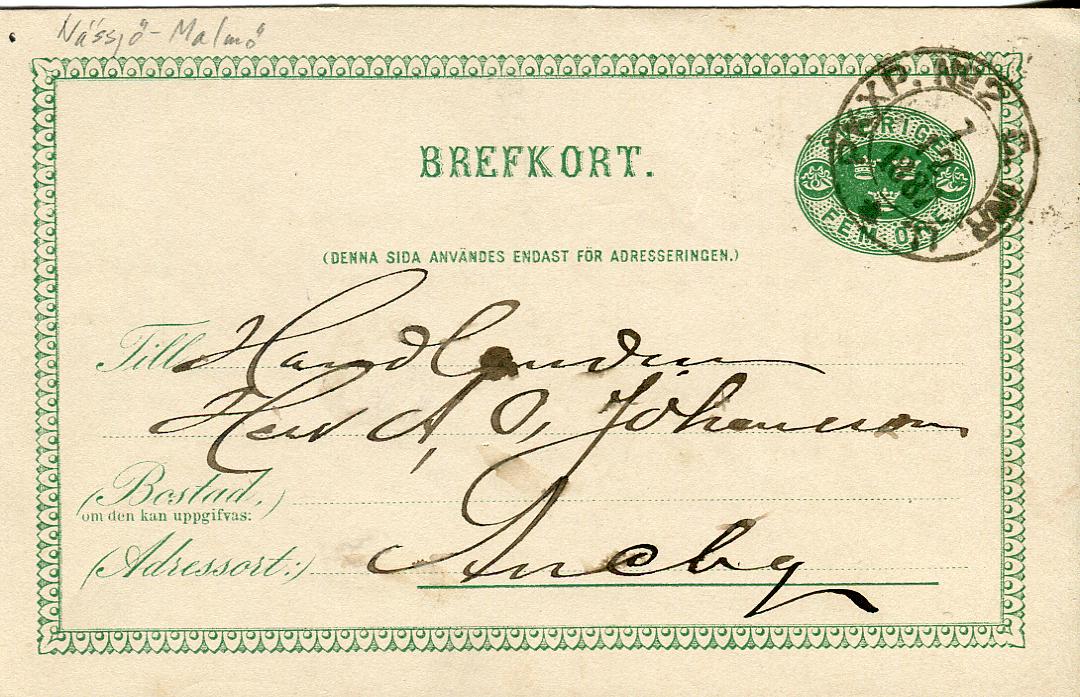 Nässjö-Malmö
BREFKORT.
SVERIGE
FEM ÖRE
PXP. No 2
(DENNA SIDA ANVÄNDES ENDAST FÖR ADRESSERINGEN.)
Till Handlanden
Herr A, O, Johansson
(Bostad,)
om den kan uppgifvas:
(Adressort:) Aneby